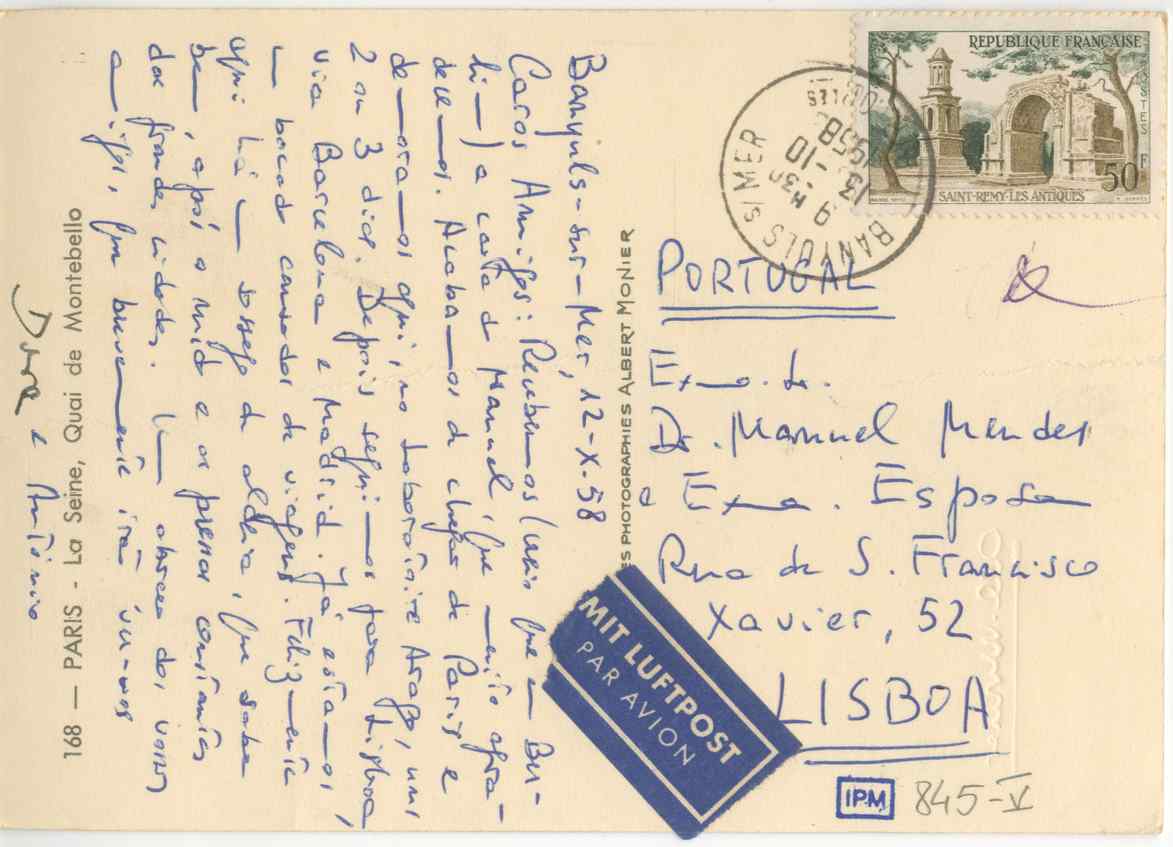 Banyuls-sur-Mer, 12-X-58
Caros Amigos: Recebemos (creio que em Ber-
lim) a carta do Manuel, que muito agra-
decemos. Acabamos de chegar de Paris e
demoramos aqui no Laboratoire Arago, uns
2 ou 3 dias. Depois seguimos para Lisboa,
via Barcelona e Madrid. Já estamos
um bocado cansados de viagens. Felizmente
aqui há um sossego de aldeia, que sabe
bem, após o ruído e as pressas constantes
das grandes cidades. Um abraço dos vossos
amigos, que brevemente irão ver-vos
Dora e António
168 — PARIS - La Seine, Quai de Montebello
ES PHOTOGRAPHIES ALBERT MONIER
REPUBLIQUE FRANÇAISE
POSTES
50F
SAINT-REMY-LES ANTIQUES
BANYULS S/MER
9 H 30
13 - 10
1958
PORTUGAL
Exmo. Sr.
Dr. Manuel Mendes
e Exma. Esposa
Rua de S. Francisco
Xavier, 52
LISBOA
MIT LUFTPOST
PAR AVION
IPM
845-V